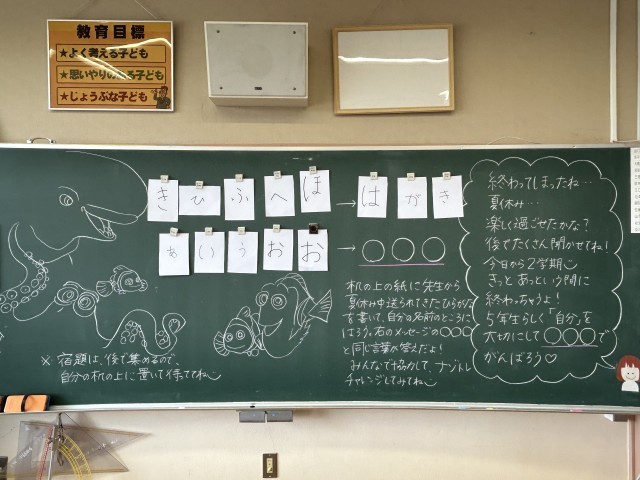 教育目標
★よく考える子ども
★思いやりのある子ども
★じょうぶな子ども
き ひ ふ へ ほ → は が き
あ い う お お → 〇〇〇
机の上の紙に先生から
夏休み中送られてきたひらがな
を書いて、自分の名前のところに
はろう。右のメッセージの〇〇〇
と同じ言葉が答えだよ!
みんなで協力して、ナゾトレ
チャレンジしてみてね
※ 宿題は、後で集めるので、
自分の机の上に置いて待っててね
終わってしまったね…
夏休み…
楽しく過ごせたかな?
後でたくさん聞かせてね!
今日から2学期
きっと あっという間に
終わっちゃうよ!
5年生らしく「自分」を
大切にして〇〇〇で
がんばろう♡